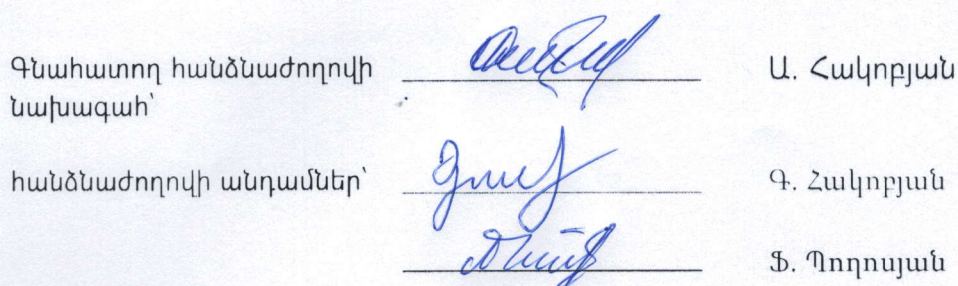 Գնահատող հանձնաժողովի Ա. Հակոբյան
նախագահ՝
հանձնաժողովի անդամներ՝ Գ. Հակոբյան
Ֆ. Պողոսյան